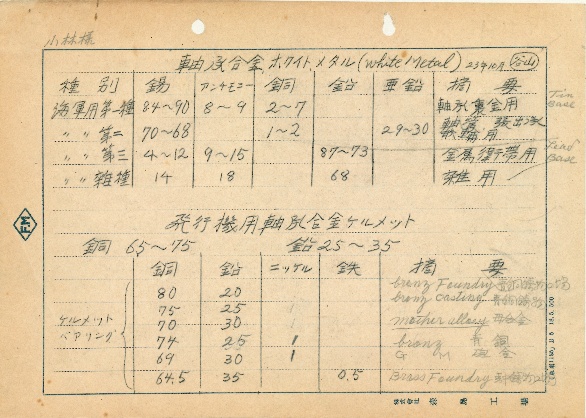 小林様
軸承合金ホワイトメタル(White Metal) 23年10月
種 別 錫 アンチモニー 銅 鉛 亜鉛 摘 要
海軍用第一種 84~90 8~9 2~7 軸承裏金用 Tin Base
〃 〃 第二 70~68 1~2 29~30
〃 〃 第三 4~12 9~15 87~73 Lead Base
〃 〃 雑種 14 18 68 雑用
飛行機用軸承合金ケルメット
銅 65~75 鉛 25~35
銅 鉛 ニッケル 鉄 摘 要
80 20 bronz Foundry
75 25 bronz casting
ケルメットベアリング 70 30 mother allary 母合金
74 25 1 bronz 青銅
69 30 1 G M
64.5 35 0.5 Brass Foundry
F.M
株式會社